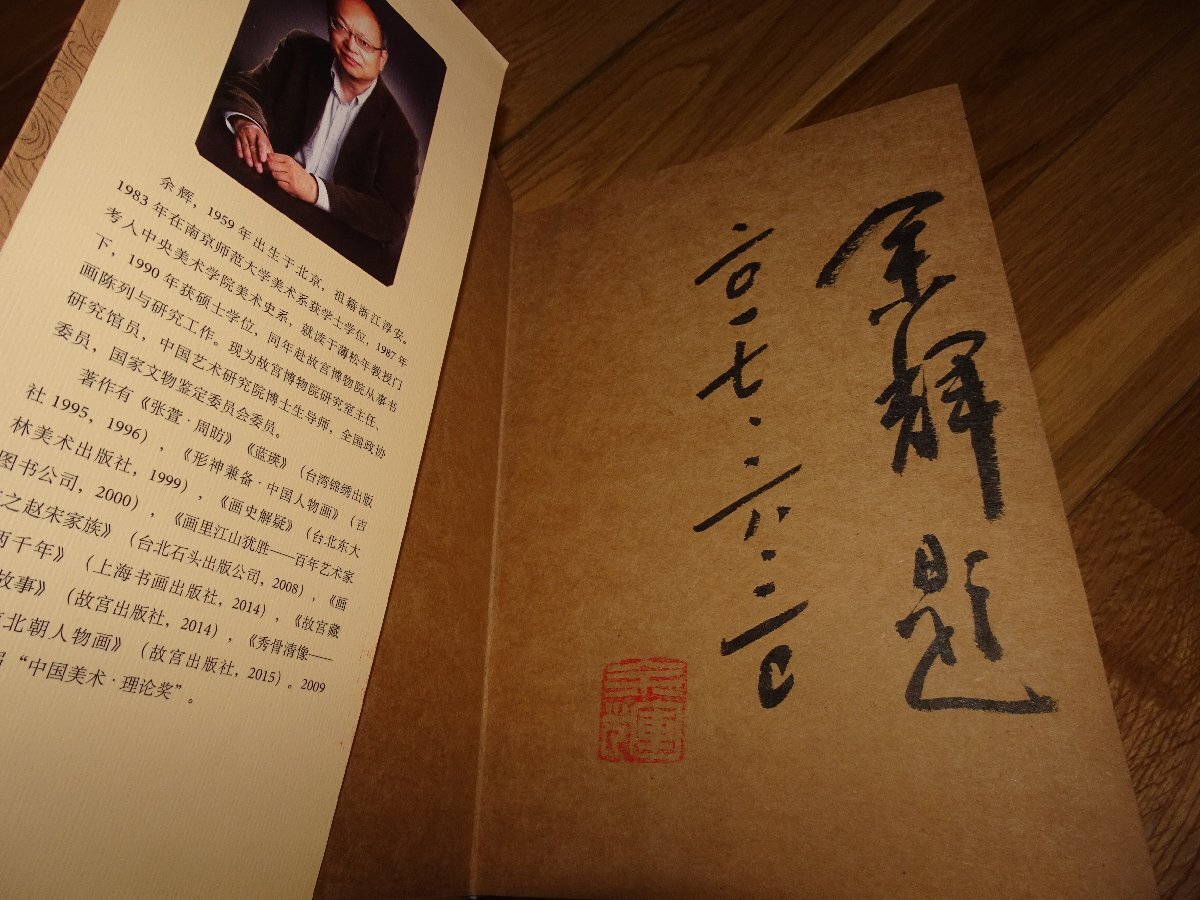 余辉，1959 年出生于北京，祖籍浙江淳安。
1983 年在南京师范大学美术系获学士学位，1987 年
考入中央美术学院美术史系，就读于薄松年教授门
下，1990 年获硕士学位，同年赴故宫博物院从事书
画陈列与研究工作。现为故宫博物院研究室主任、
研究馆员，中国艺术研究院博士生导师，全国政协
委员，国家文物鉴定委员会委员。
著作有《张萱·周昉》《蓝瑛》（台湾锦绣出版
社 1995，1996），《形神兼备·中国人物画》（吉
林美术出版社，1999），《画史解疑》（台北东大
图书公司，2000），《画里江山犹胜——百年艺术家
之赵宋家族》（台北石头出版公司，2008），《画
两千年》（上海书画出版社，2014），《故宫藏
故事》（故宫出版社，2014），《秀骨清像——
北朝人物画》（故宫出版社，2015）。2009
“中国美术·理论奖”。
余辉题
二〇一七·六·二〇